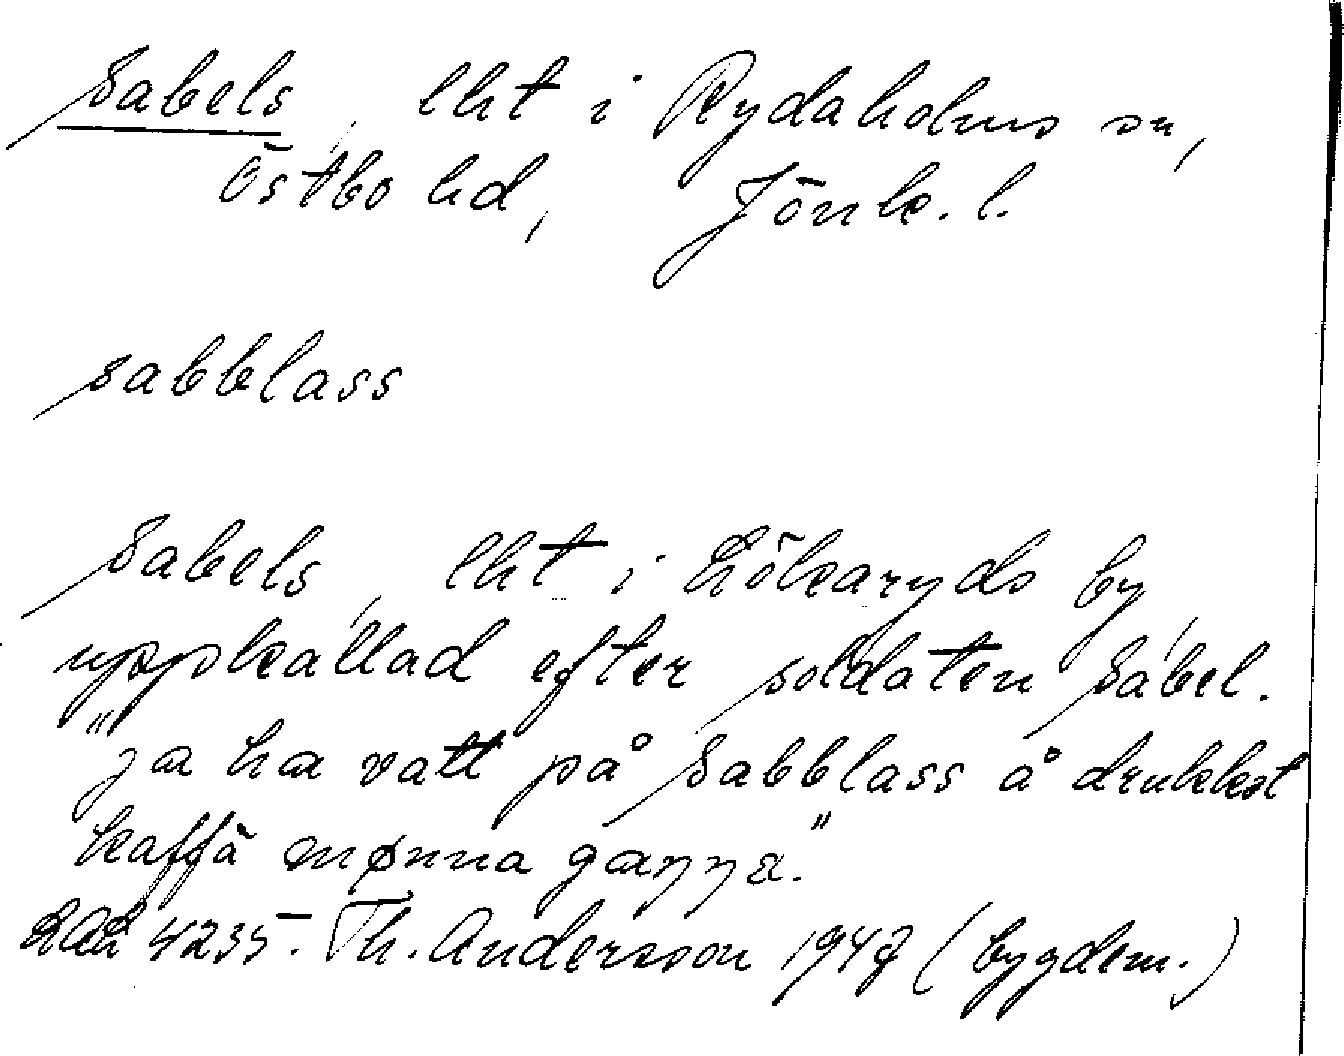 Sabels, lht i Rydaholms sn,
Östbo hd, Jönk. l.
sabblass
Sabels, lht i Hökaryds by,
uppkallad efter soldaten Sabel.
"ja ha vatt på Sabblass å drukket
kaffä mønna gaŋŋa."
4235. Th. Andersson 1947 (bygdem.)